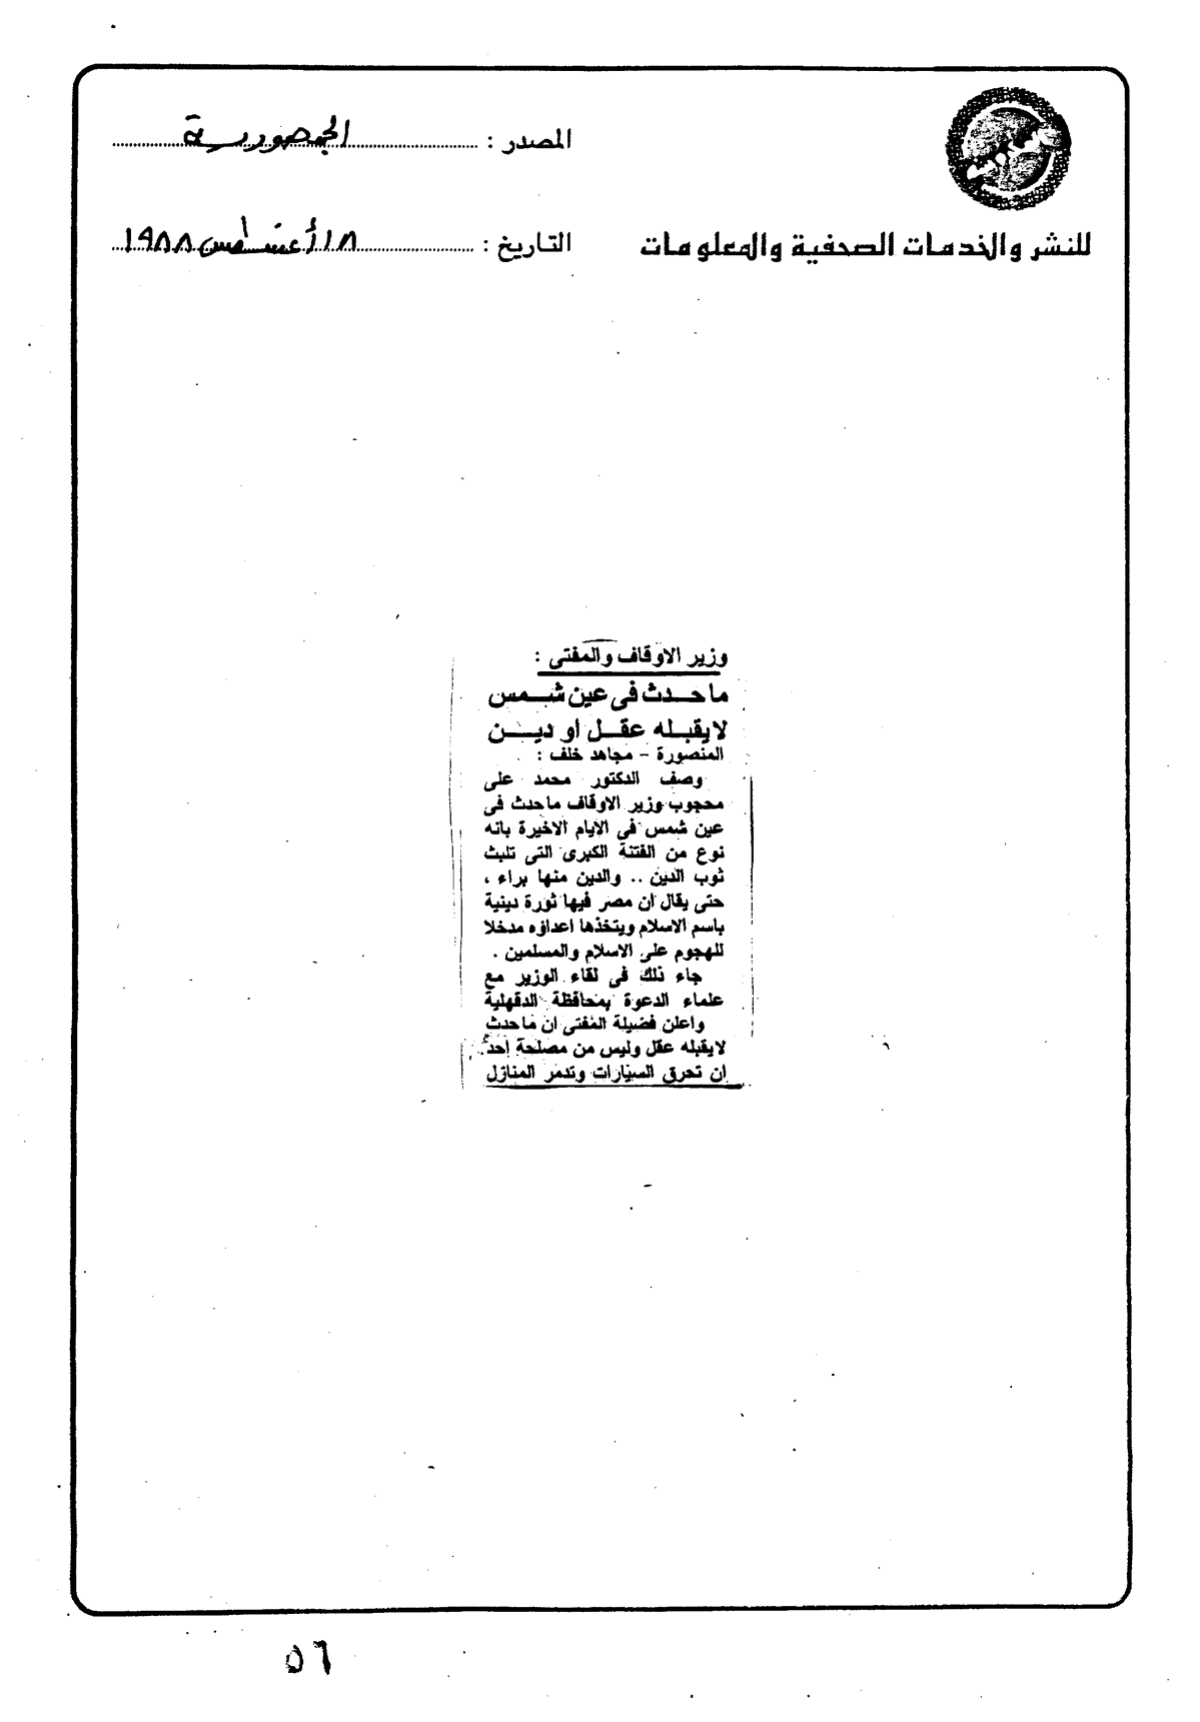 المصدر : الجمهورية
للنشر والخدمات الصحفية والمعلومات
التاريخ : ١٨ أغسطس ١٩٨٨
وزير الاوقاف والمفتى :
ماحدث فى عين شمس
لايقبله عقل او دين
المنصورة - مجاهد خلف :
وصف الدكتور محمد على
محجوب وزير الاوقاف ماحدث فى
عين شمس فى الايام الاخيرة بانه
نوع من الفتنة الكبرى التى تلبث
ثوب الدين .. والدين منها براء ،
حتى يقال ان مصر فيها ثورة دينية
باسم الاسلام ويتخذها اعداؤه مدخلا
للهجوم على الاسلام والمسلمين .
جاء ذلك فى لقاء الوزير مع
علماء الدعوة بمحافظة الدقهلية
واعلن فضيلة المفتى ان ماحدث
لايقبله عقل وليس من مصلحة احد
ان تحرق السيارات وتدمر المنازل
٥٦